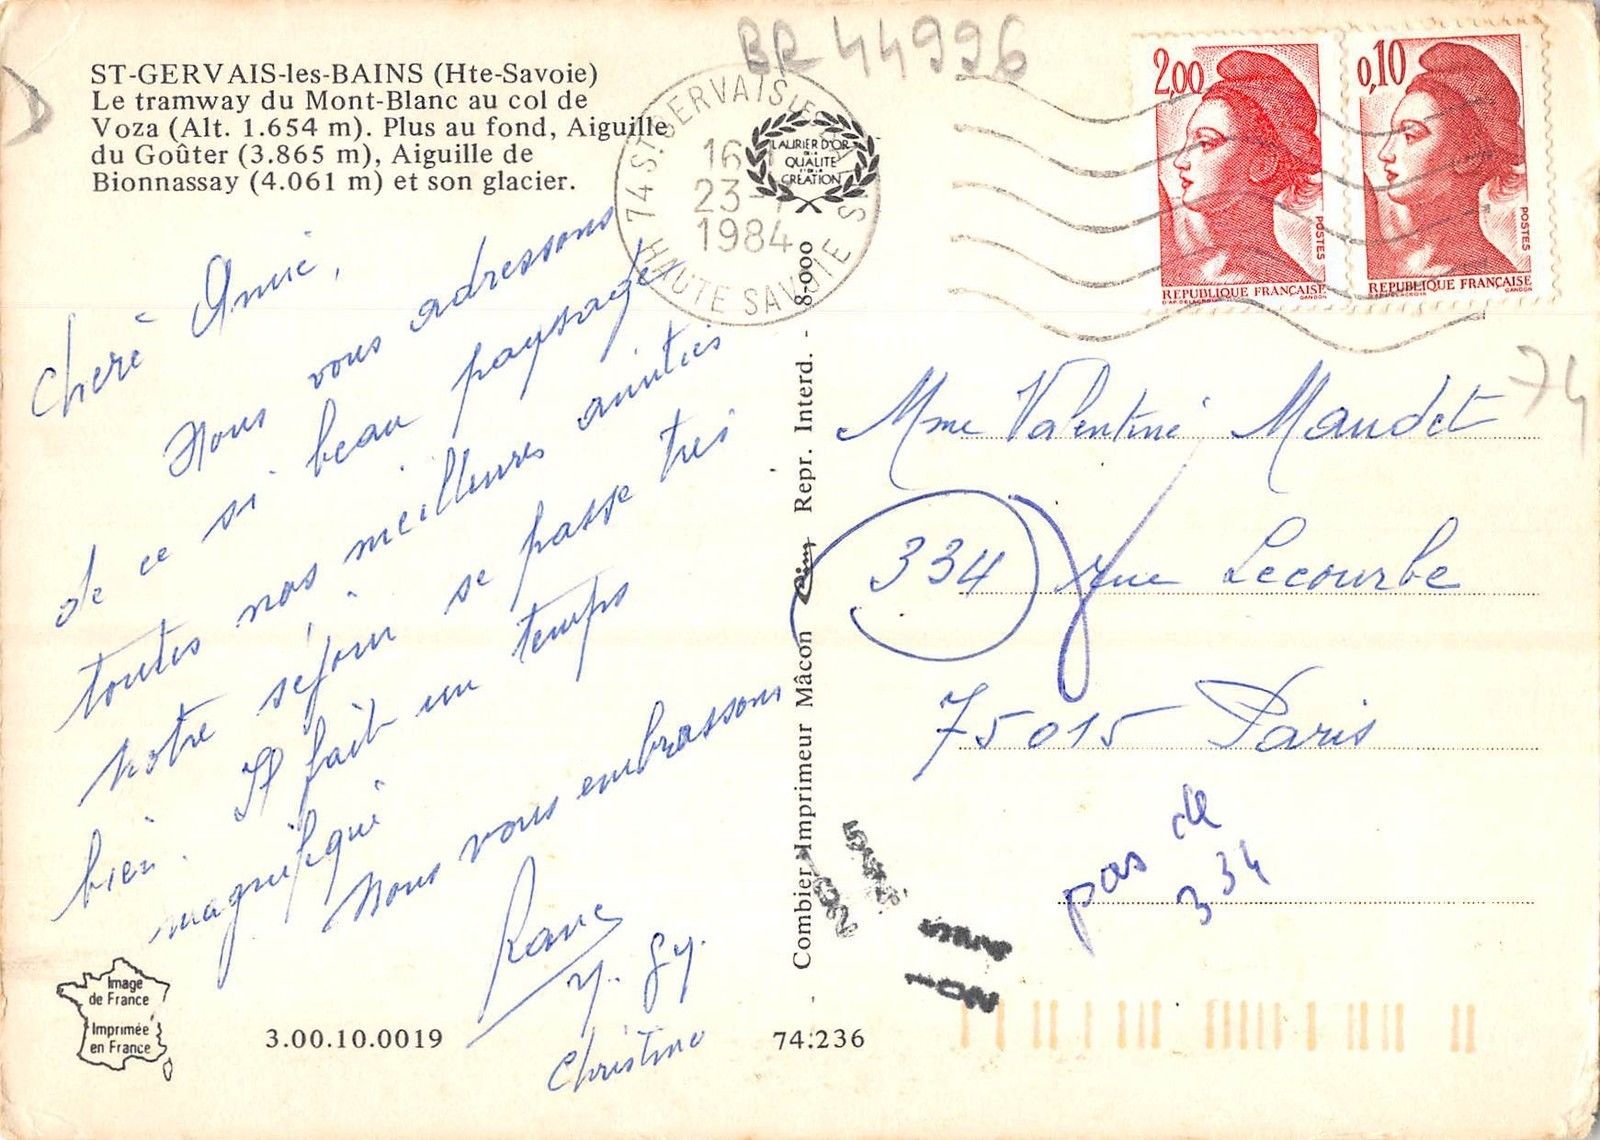 BR 44996
ST-GERVAIS-les-BAINS (Hte-Savoie)
Le tramway du Mont-Blanc au col de
Voza (Alt. 1.654 m). Plus au fond, Aiguille
du Goûter (3.865 m), Aiguille de
Bionnassay (4.061 m) et son glacier.
74 ST GERVAIS LES
16
23-
1984
HAUTE SAVOIE
LAURIER D'OR
DE LA
QUALITE
ET DE LA
CRÉATION
2,00
POSTES
REPUBLIQUE FRANÇAISE
D'AP. DELACROIX GANDON
0,10
POSTES
REPUBLIQUE FRANÇAISE
D'AP. DELACROIX GANDON
74
Chere Amie,
Nous vous adressons
de ce si beau paysage
toutes nos meilleures amitiés
Notre séjour se passe très
bien. Il fait un temps
magnifique
Nous vous embrassons
Christine
Combier Imprimeur Mâcon Cim Repr. Interd. - 8-000
Mme Valentine Maudet
334 rue Lecourbe
75015 Paris
pas de
334
Image
de France
Imprimée
en France
3.00.10.0019
74.236